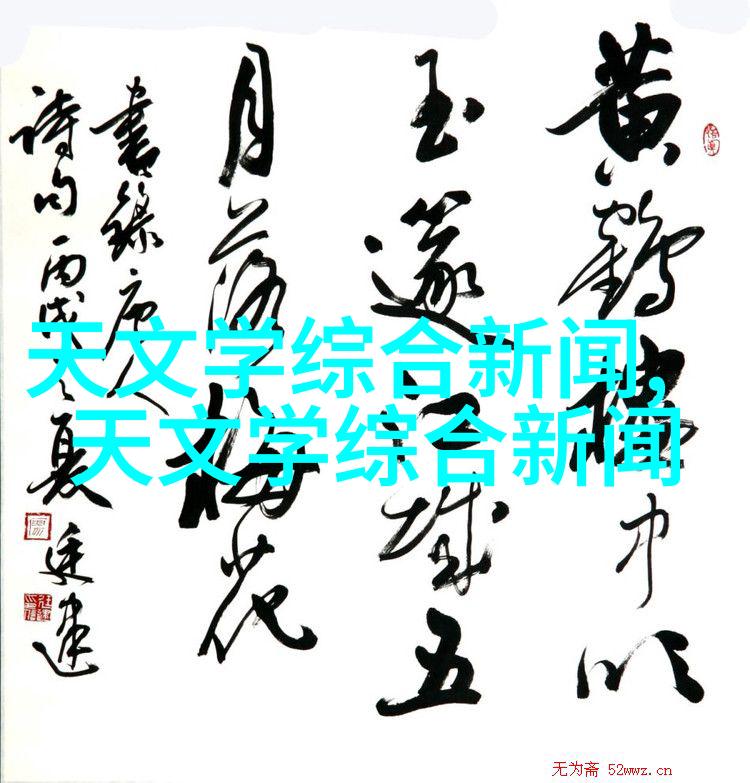 黄鹤楼中吹
玉篴江城五
月落梅花
書錄唐人
詩句丙戌之夏廷建
天文学综合新闻,
天文学综合新闻
无为斋 52wwz.cn